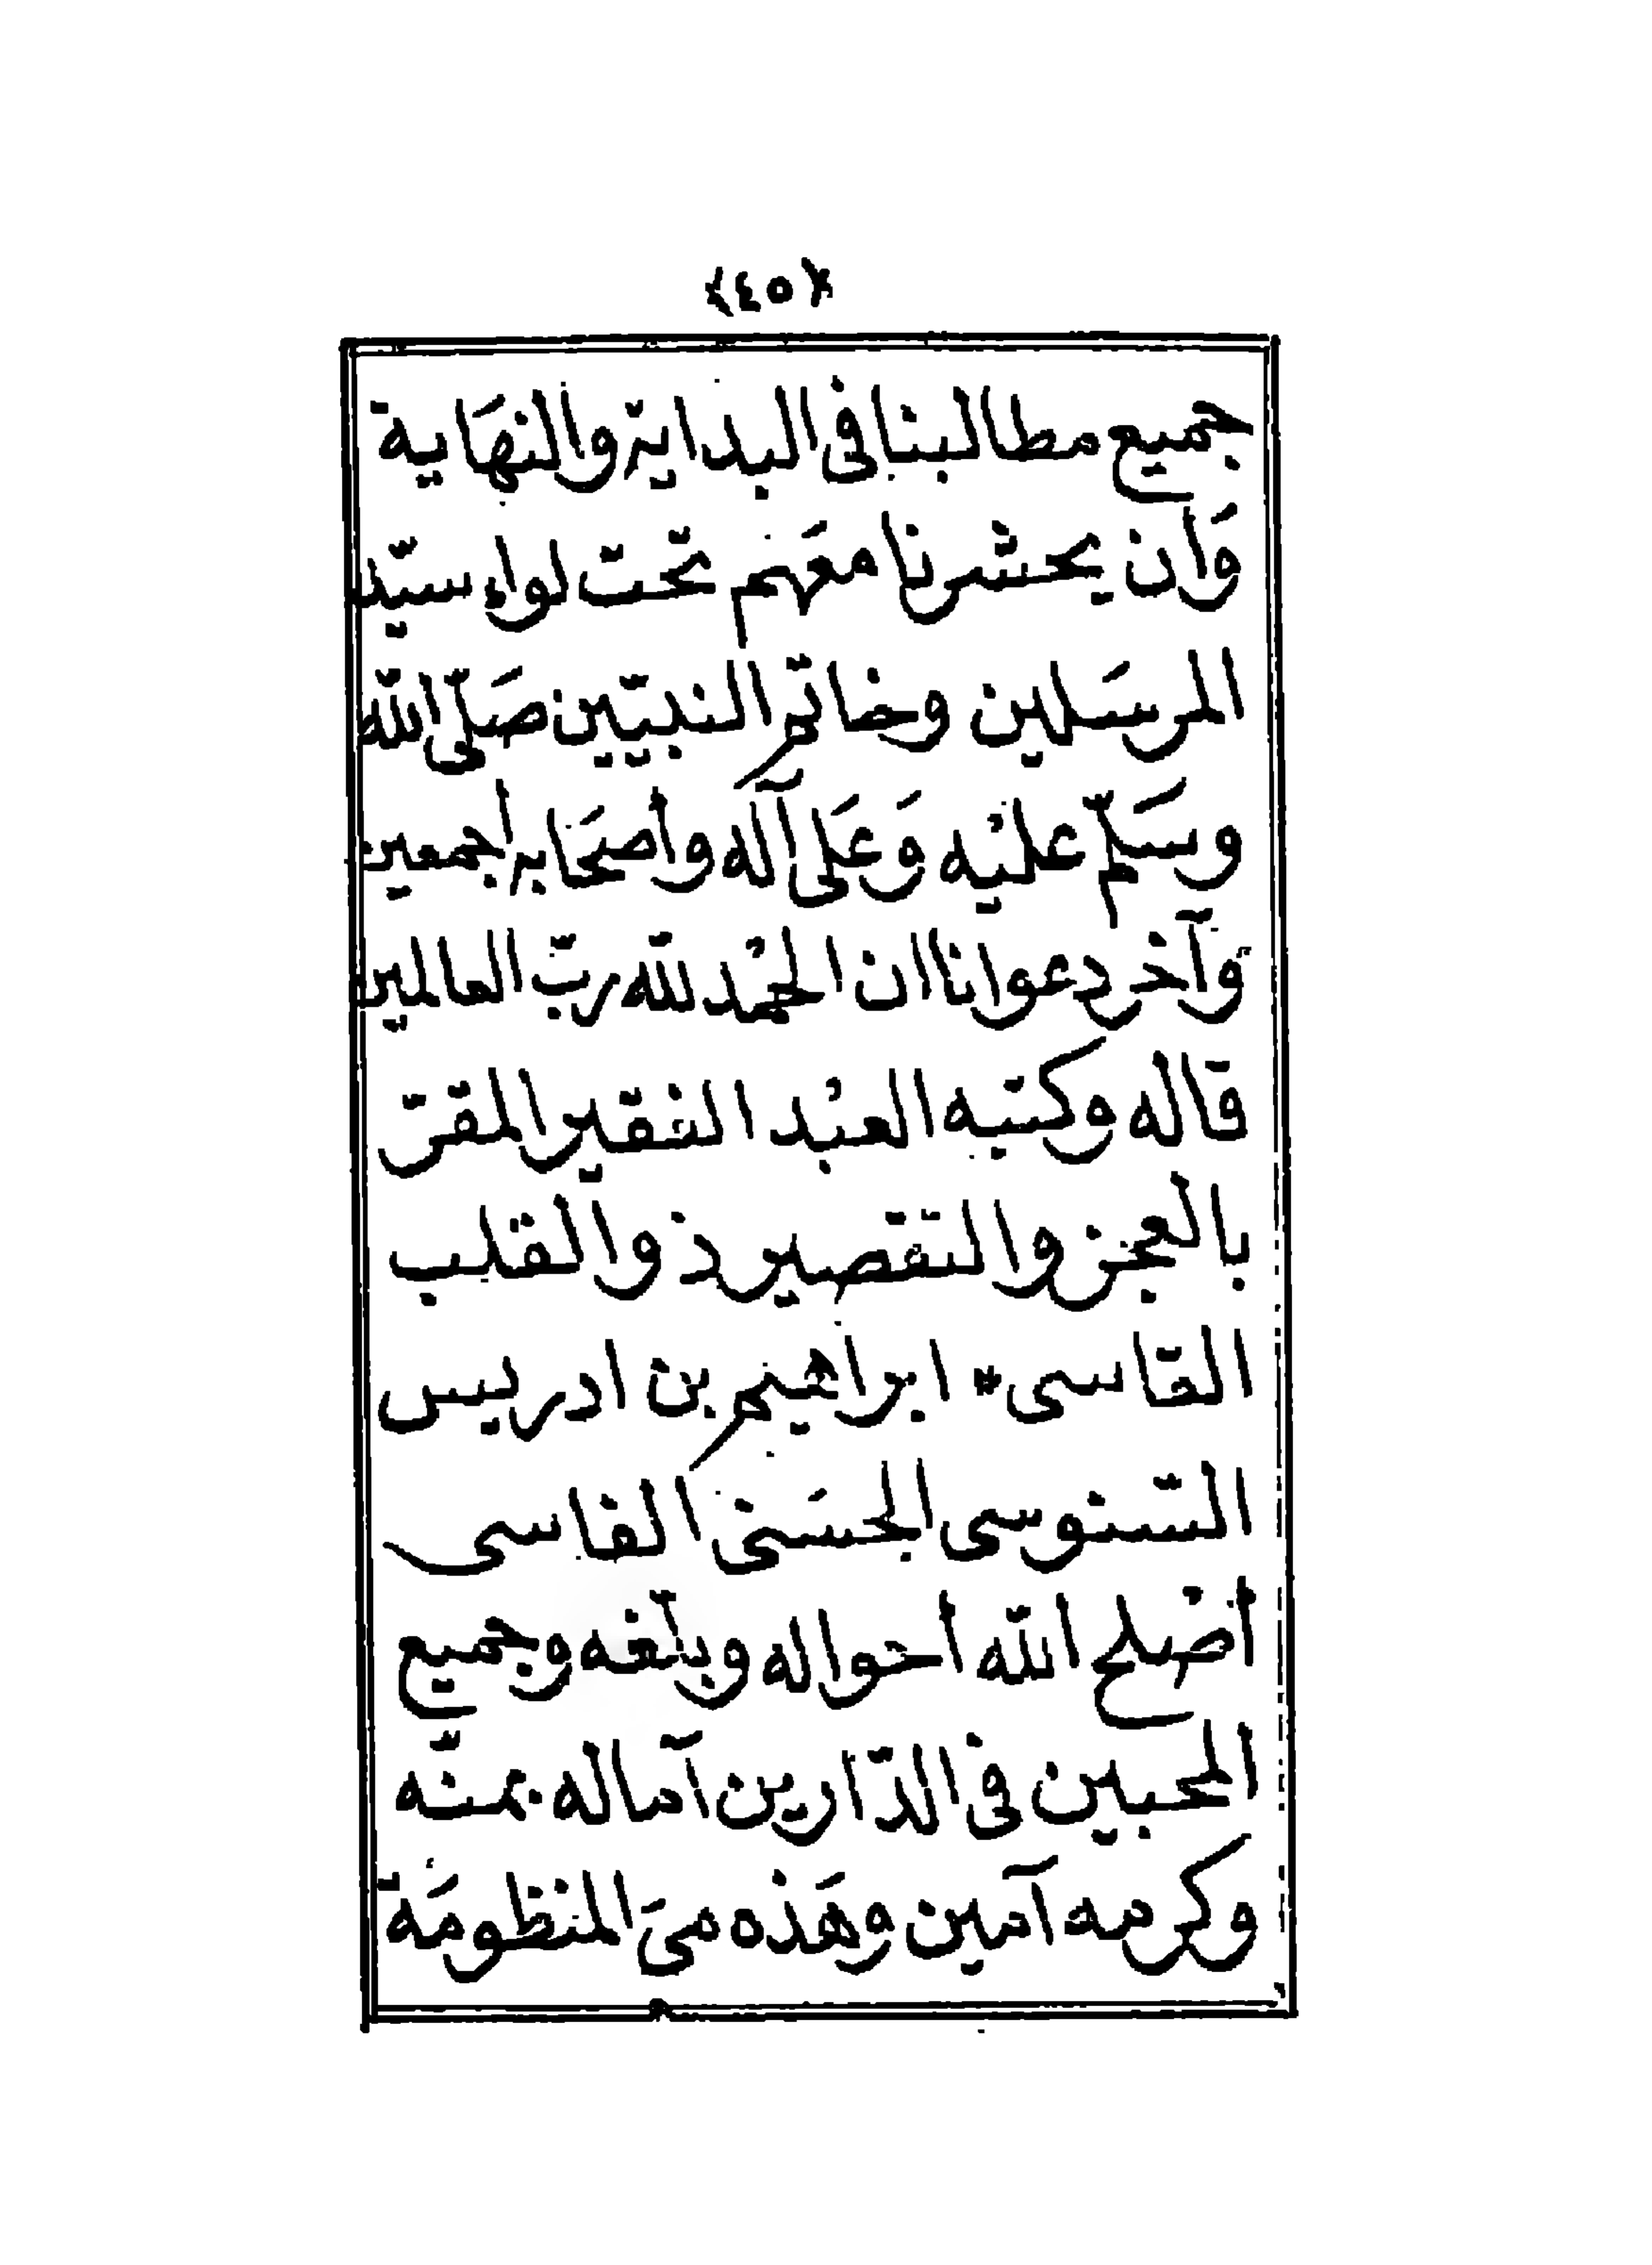 ﴿٤٥﴾
جميع مطالبنا فى البداية والنهَاية
وَأن يحشرنا معَهم تحت لواء سيّد
المرسَلين وخاتم النبيّين صَلّى الله
وسَلّم عليْه وَعَلى آله وأصحَابه أجمعين
وآخر دعوانا ان الحمْد لله ربّ العالمين
قاله وكتبه العبْد الفقير المقرّ
بالعجز والتقصير ذو القلب
القاسى * ابراهيم بن ادريس
السّنوسى الحسَنى الفاسى
أصْلح الله احواله وبلّغه وجميع
المحبين فى الدّارين آماله بمنّه
وكرمه آمين وهَذه هىَ المنظومَة